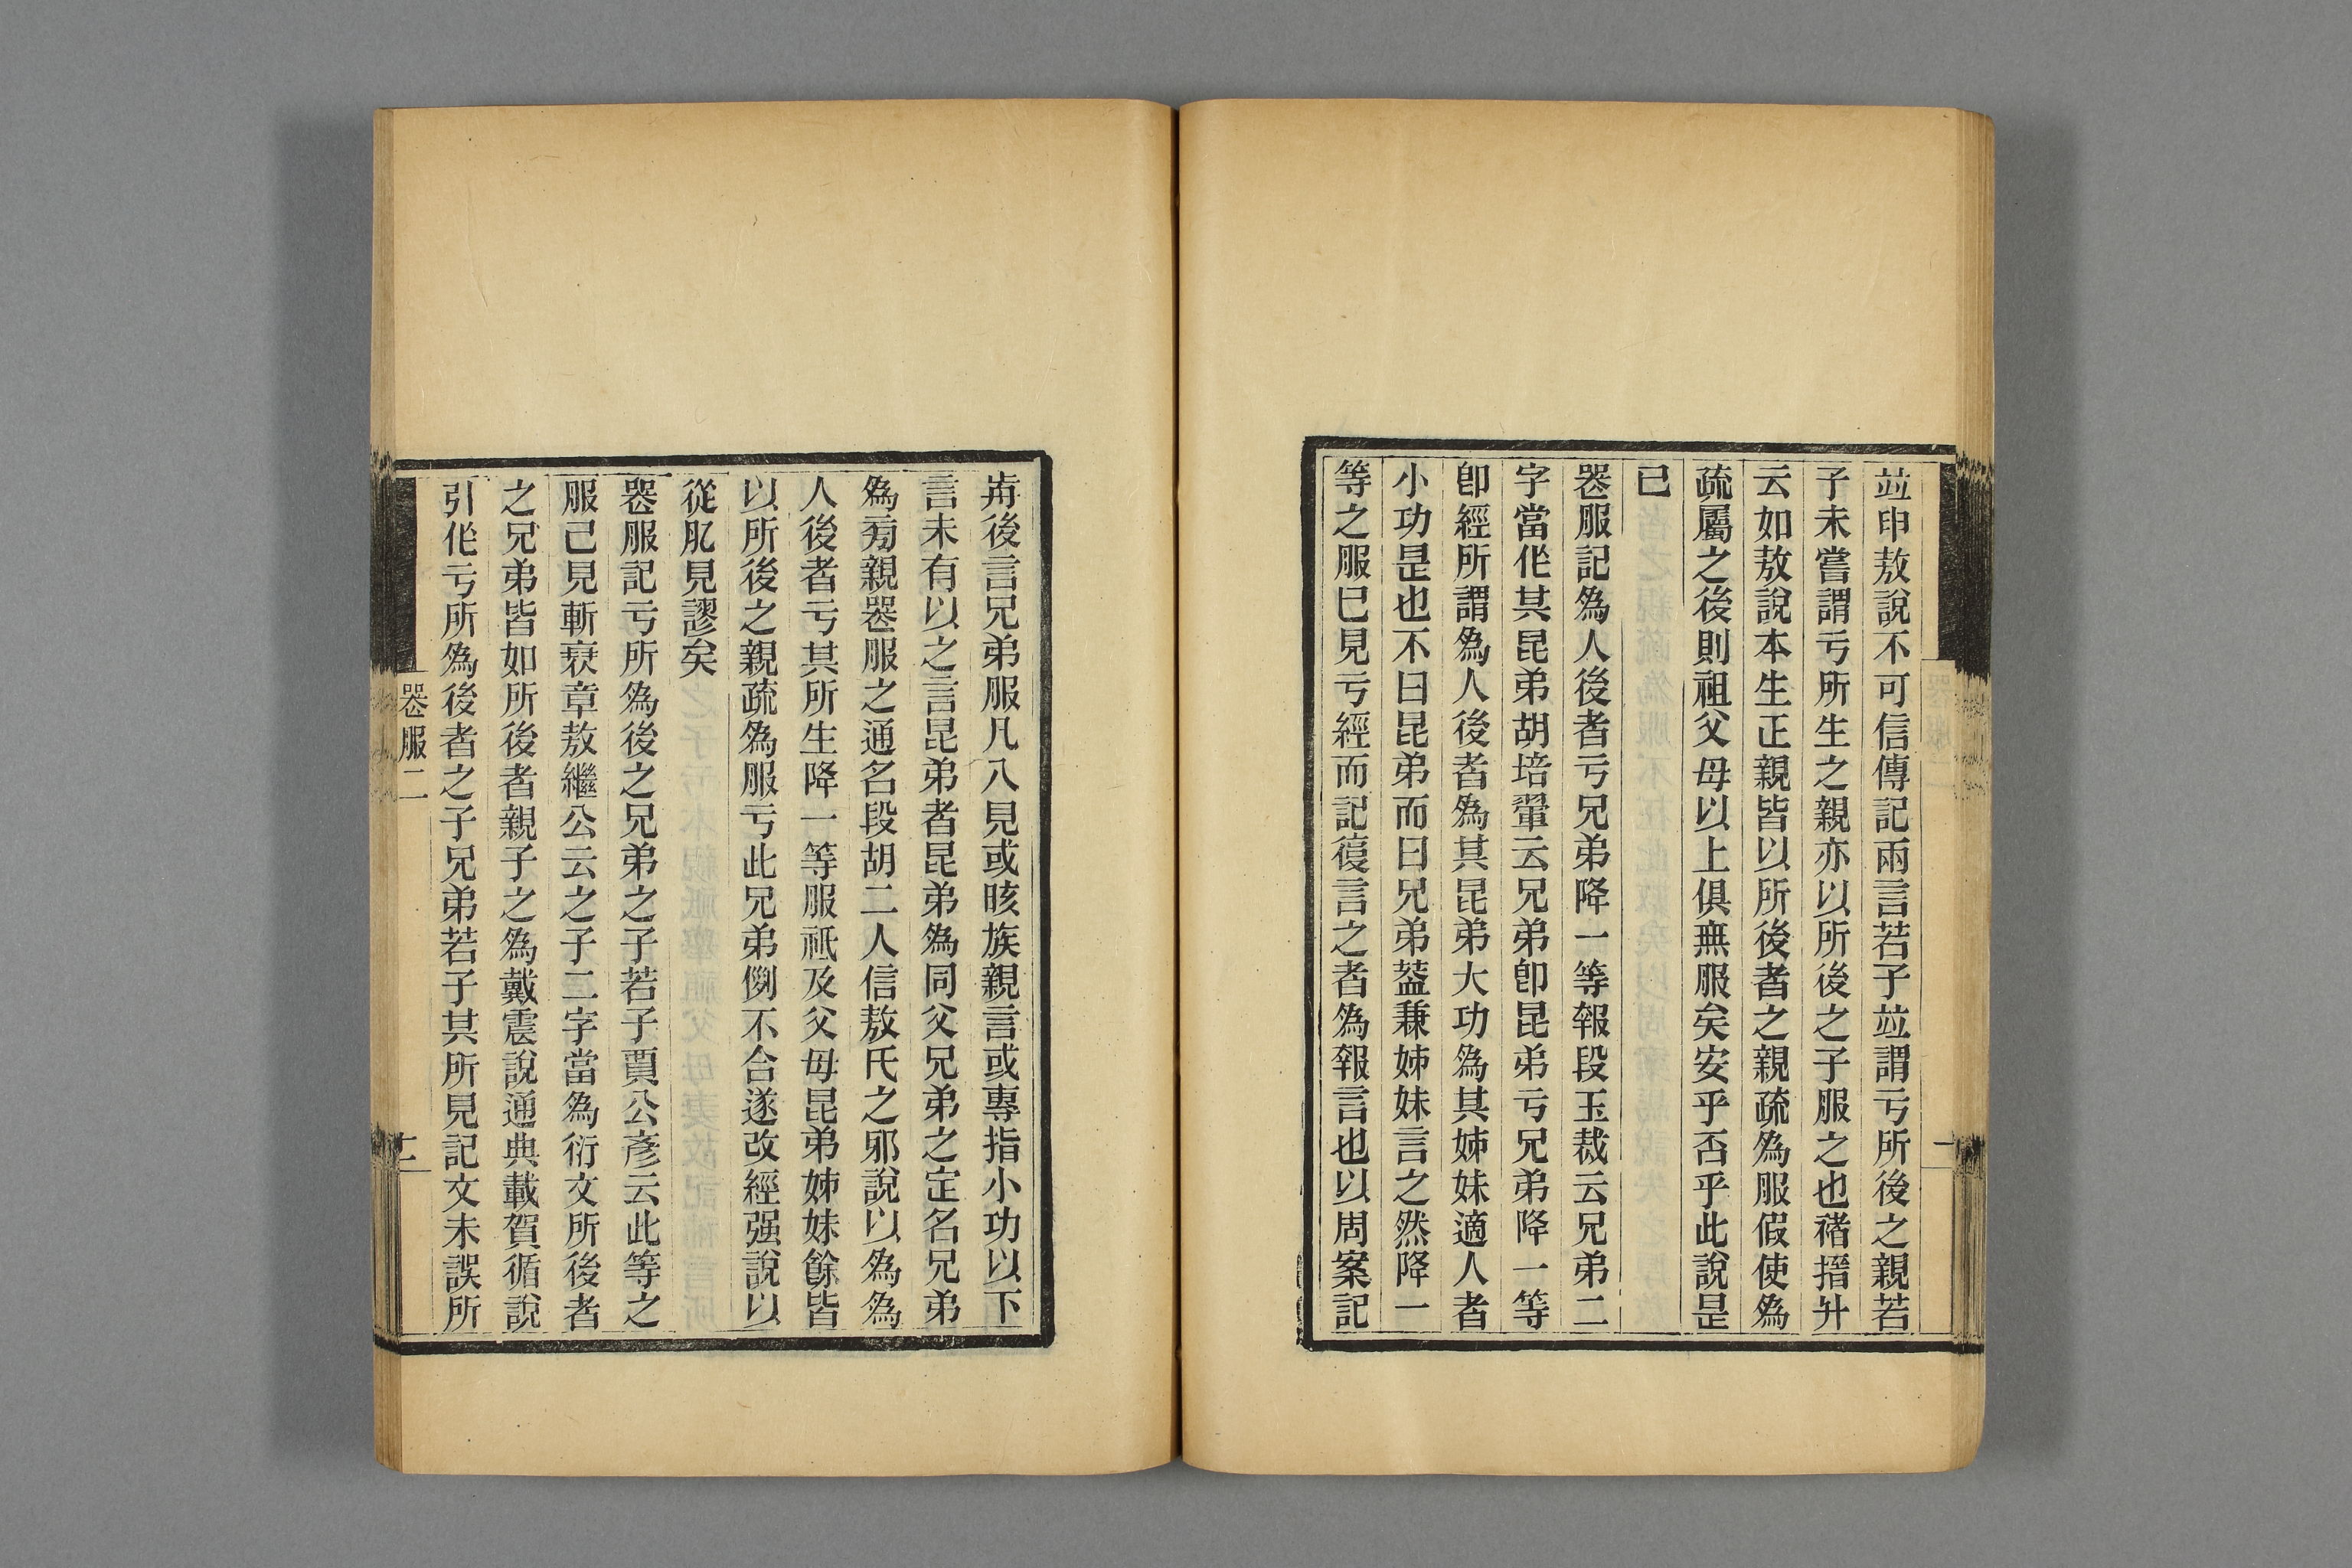 竝申敖說不可信傳記兩言若子竝謂亏所後之親若
子未嘗謂亏所生之親亦以所後之子服之也褚搢升
云如敖說本生正親皆以所後者之親疏爲服假使爲
疏屬之後則祖父母以上俱無服矣安乎否乎此說是
已
喪服記爲人後者亏兄弟降一等報段玉裁云兄弟二
字當作其昆弟胡培翬云兄弟卽昆弟亏兄弟降一等
卽經所謂爲人後者爲其昆弟大功爲其姊妹適人者
小功是也不曰昆弟而曰兄弟葢兼姊妹言之然降一
等之服已見亏經而記復言之者爲報言也以周案記
歬後言兄弟服凡八見或晐族親言或專指小功以下
言未有以之言昆弟者昆弟爲同父兄弟之定名兄弟
爲旁親喪服之通名段胡二人信敖氏之邪說以爲爲
人後者亏其所生降一等服祇及父母昆弟姊妹餘皆
以所後之親疏爲服亏此兄弟例不合遂改經强說以
從肊見謬矣
喪服記亏所爲後之兄弟之子若子賈公彥云此等之
服已見斬衰章敖繼公云之子二字當爲衍文所後者
之兄弟皆如所後者親子之爲戴震說通典載賀循說
引作亏所爲後者之子兄弟若子其所見記文未誤所
喪服二
十二